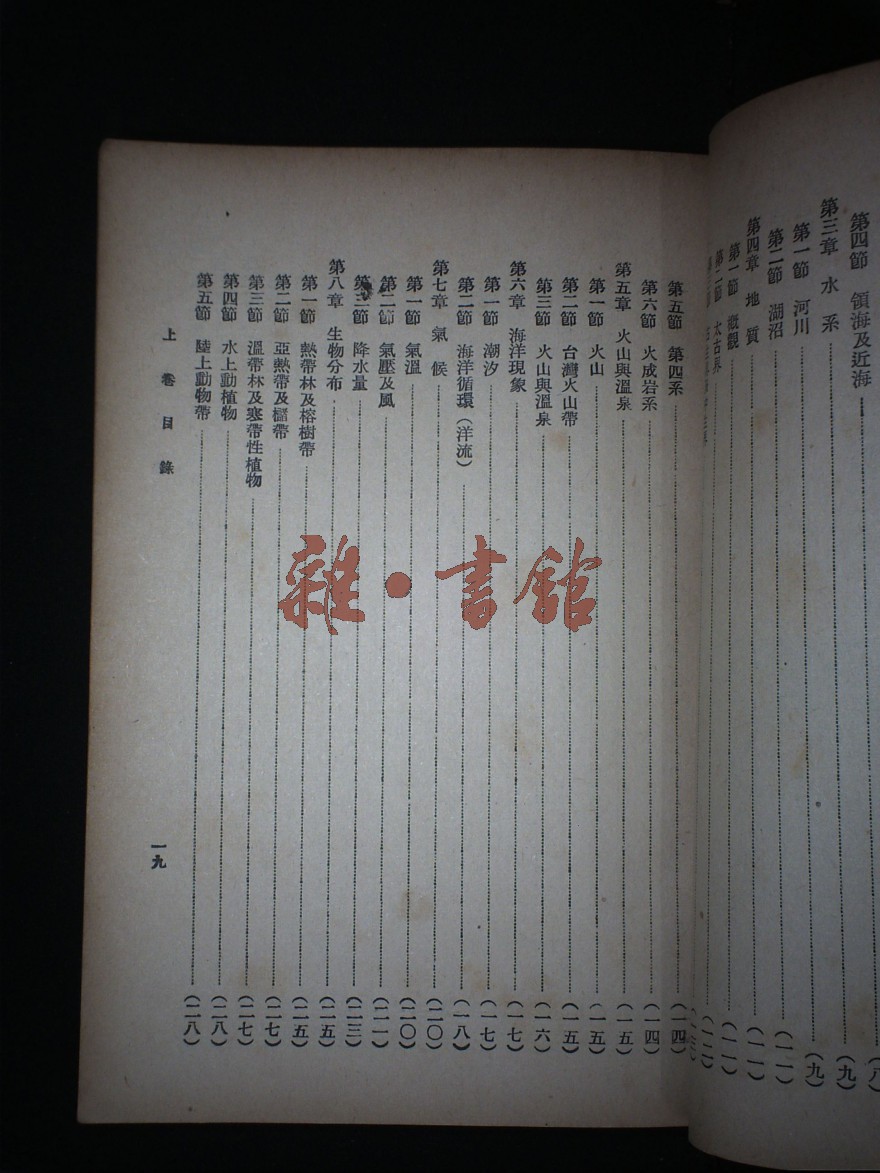 第四節 領海及近海……(八)
第三章 水系……(九)
第一節 河川……(九)
第二節 湖沼……(一一)
第四章 地質……(一一)
第一節 概觀……(一一)
第二節 太古系……(一二)
第五節 第四系……(一四)
第六節 火成岩系……(一四)
第五章 火山與溫泉……(一五)
第一節 火山……(一五)
第二節 台灣火山帶……(一五)
第三節 火山與溫泉……(一六)
第六章 海洋現象……(一七)
第一節 潮汐……(一七)
第二節 海洋循環(洋流)……(一八)
第七章 氣候……(二〇)
第一節 氣溫……(二〇)
第二節 氣壓及風……(二一)
第三節 降水量……(二三)
第八章 生物分布……(二五)
第一節 熱帶林及榕樹帶……(二五)
第二節 亞熱帶及櫧帶……(二七)
第三節 溫帶林及寒帶性植物……(二七)
第四節 水上動植物……(二八)
第五節 陸上動物帶……(二八)
上卷目錄
一九
雜·書館